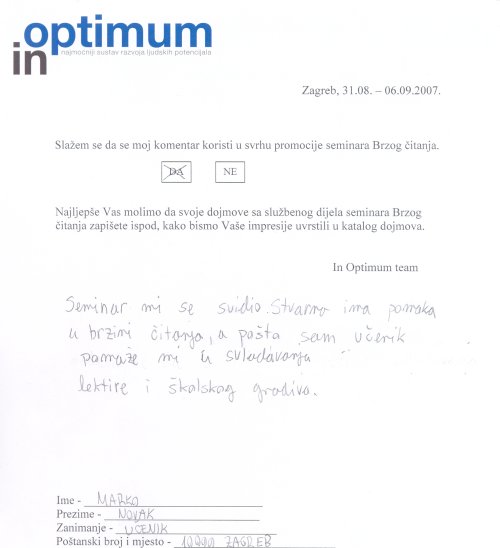 optimum
in
najmoćniji sustav razvoja ljudskih potencijala
Zagreb, 31.08. – 06.09.2007.
Slažem se da se moj komentar koristi u svrhu promocije seminara Brzog čitanja.
DA NE
Najljepše Vas molimo da svoje dojmove sa službenog dijela seminara Brzog
čitanja zapišete ispod, kako bismo Vaše impresije uvrstili u katalog dojmova.
In Optimum team
Seminar mi se svidio. Stvarno ima pomaka
u brzini čitanja, a pošta sam učenik
pomaže mi u svladavanja
lektire i školskog gradiva.
Ime - MARKO
Prezime - NOVAK
Zanimanje - UČENIK
Poštanski broj i mjesto - 10000 ZAGREB